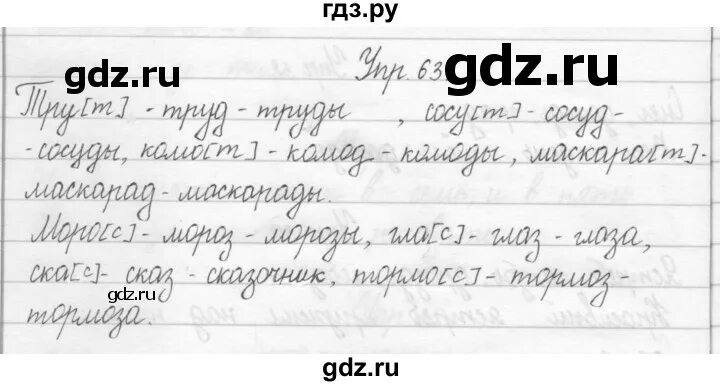 гдз.ру
Упр. 63
Тру[т] - труд - труды , сосу[т] - сосуд -
- сосуды, комо[т] - комод - комоды, маскара[т] -
маскарад - маскарады.
Моро[с] - мороз - морозы, гла[с] - глаз - глаза,
ска[с] - сказ - сказочник, тормо[с] - тормоз -
gdz.ru
gdz.ru
тормоза.
gdz.ru